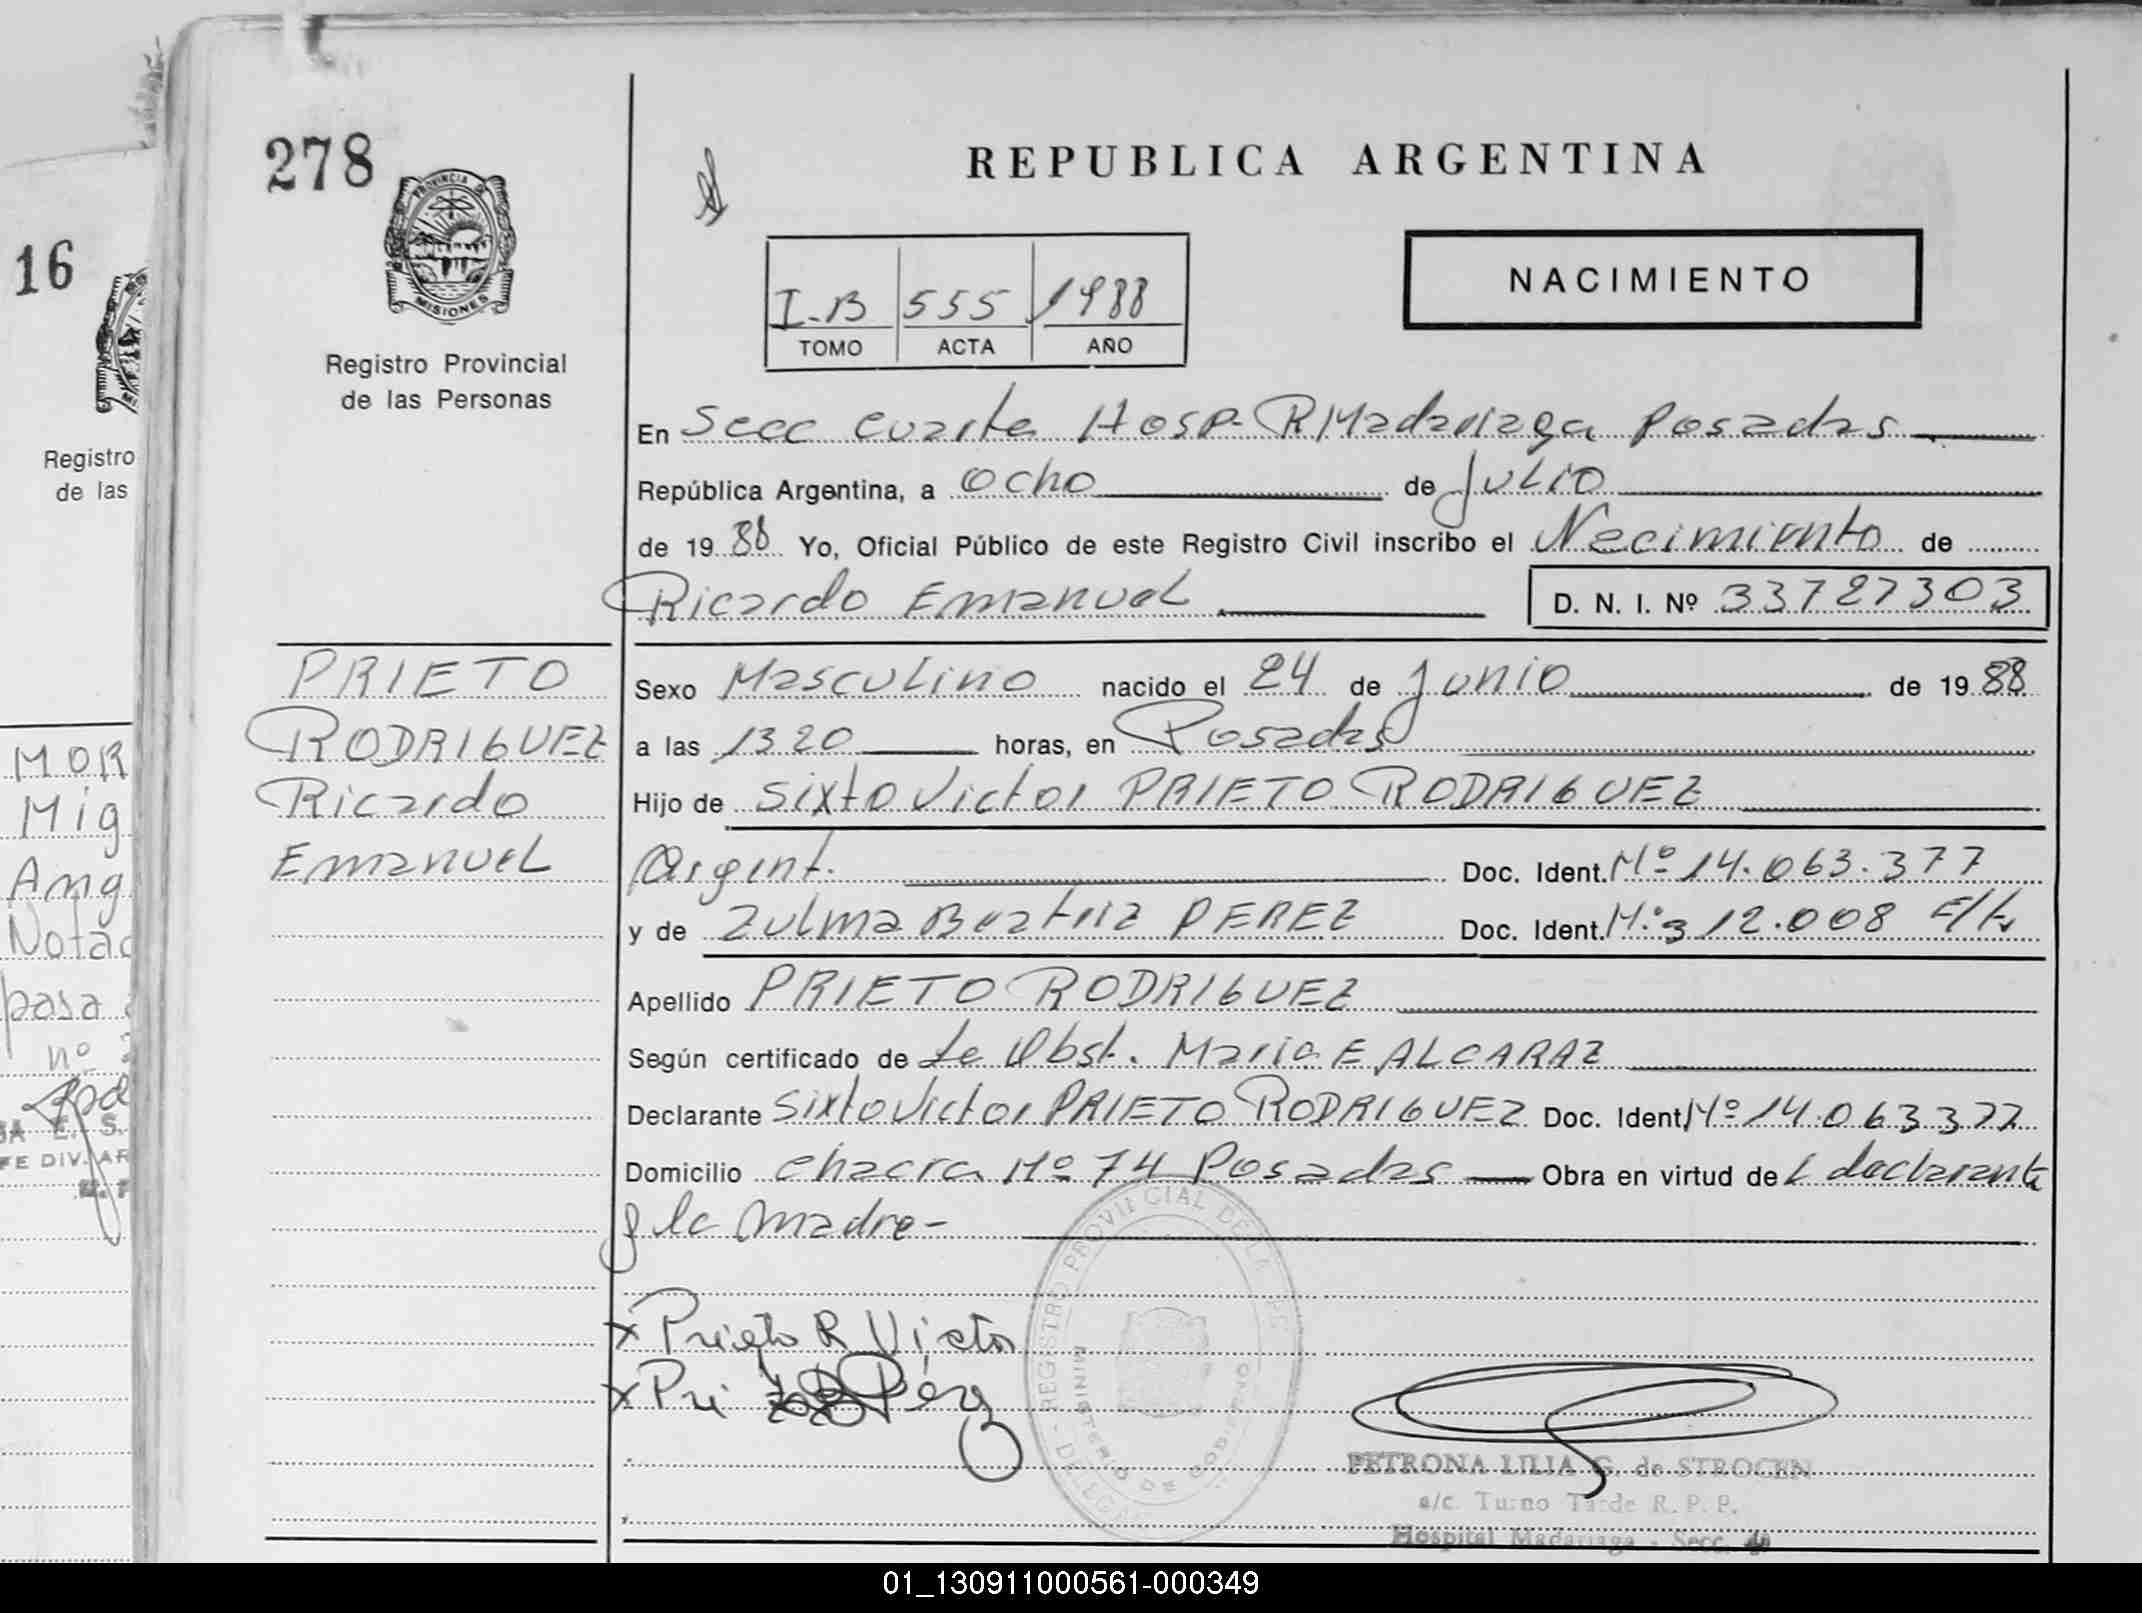 278
PROVINCIA DE
MISIONES
Registro Provincial
de las Personas
REPUBLICA ARGENTINA
NACIMIENTO
I-B 555 1988
TOMO ACTA AÑO
En Secc cuarta Hosp. R Madariaga Posadas
República Argentina, a ocho de Julio
de 19 88 Yo, Oficial Público de este Registro Civil inscribo el Nacimiento de
Ricardo Emanuel D. N. I. Nº 33727303
PRIETO
RODRIGUEZ
Ricardo
Emanuel
Sexo Masculino nacido el 24 de Junio de 19 88
a las 13 20 horas, en Posadas
Hijo de Sixto Victor PRIETO RODRIGUEZ
Argent. Doc. Ident. Nº 14.063.377
y de Zulma Beatriz PEREZ Doc. Ident. 12.008
Apellido PRIETO RODRIGUEZ
Según certificado de La Obst. Maria E ALCARAZ
Declarante Sixto Victor PRIETO RODRIGUEZ Doc. Ident Nº 14.063377
Domicilio Chacra Nº 74 Posadas Obra en virtud de L declarante
y la Madre-
x Prieto R Victor
x Pri Pérez
REGISTRO PROVINCIAL DE LAS PE
MINISTERIO DE GOBIERNO
DELEGA
PETRONA LILIA G. de STROGEN
a/c. Turno Tarde R. P. P.
Hospital Madariaga - Secc.
16
Registro
de las
MOR
Mig
Ang
Notac
pasa
nº
E. S.
FE DIV. AR
01_130911000561-000349